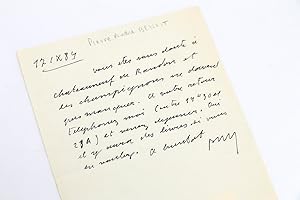 Pierre André BENOIT
17 IX 84
vous êtes sans doute à
chateauneuf de Randon et
les champignons ne doivent
pas manquer. A votre retour
telephonez moi (entre 19h30 et
et venez dejeuner. Oui
il y aura des livres si vous
en voulez. A bientôt